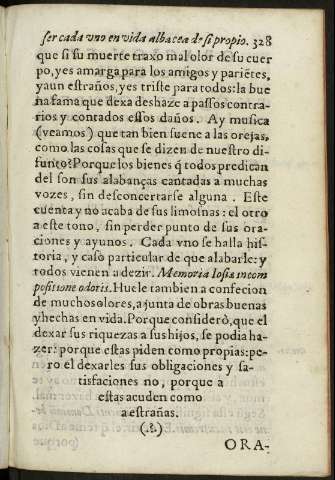 ser cada vno en vida albacea de si propio. 328
que si su muerte traxo mal olor de su cuer
po, yes amarga para los amigos y pariẽtes,
y aun estraños, yes triste para todos: la bue
na fama que dexa deshaze a passos contra-
rios y contados essos daños. Ay musica
(veamos) que tan bien suene a las orejas,
como las cosas que se dizen de nuestro di-
funto? Porque los bienes q̃ todos predican
del son sus alabanças cantadas a muchas
vozes, sin desconcertarse alguna. Este
cuenta y no acaba de sus limosnas: el otro
a este tono, sin perder punto de sus ora-
ciones y ayunos. Cada vno se halla his-
toria, y caso particular de que alabarle: y
todos vienen a dezir. Memoria Iosiæ in com
positione odoris. Huele tambien a confecion
de muchos olores, a junta de obras buenas
y hechas en vida. Porque considerò, que el
dexar sus riquezas a sus hijos, se podia ha-
zer: porque estas piden como propias: pe-
ro el dexarles sus obligaciones y sa-
tisfaciones no, porque a
estas acuden como
a estrañas.
(.§.)
ORA-